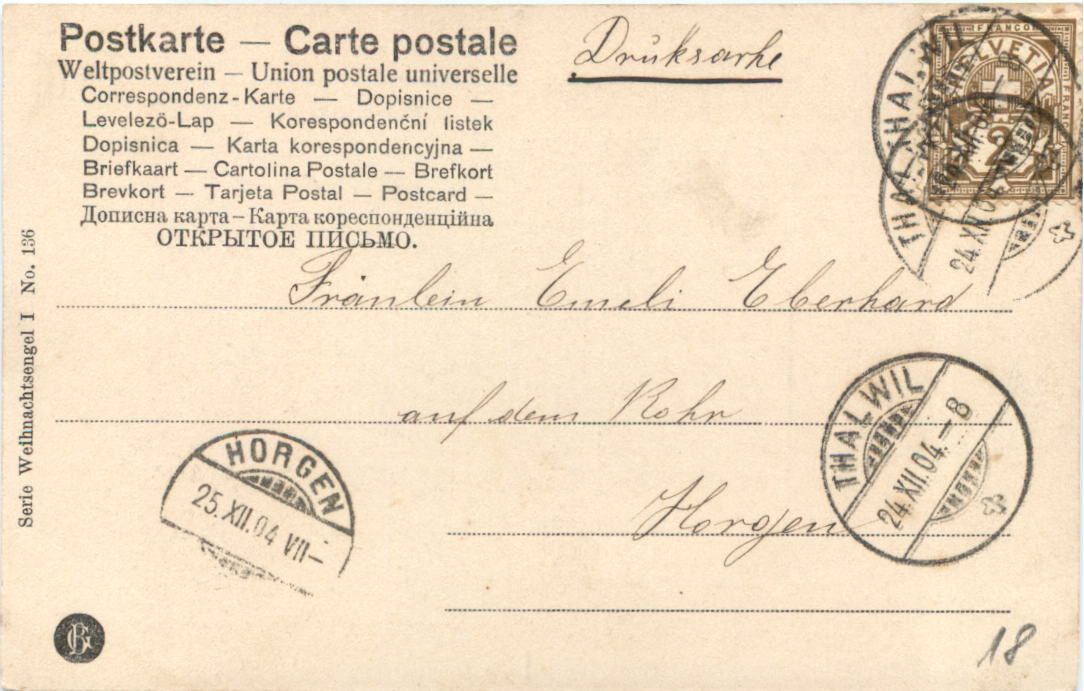 Postkarte — Carte postale
Weltpostverein — Union postale universelle
Correspondenz-Karte — Dopisnice —
Levelezö-Lap — Korespondenční listek
Dopisnica — Karta korespondencyjna —
Briefkaart — Cartolina Postale — Brefkort
Brevkort — Tarjeta Postal — Postcard —
Дописна карта — Карта кореспонденційна
ОТКРЫТОЕ ПИСЬМО.
Drŭksache
FRANCO
HELVETIA
2
THALWIL
24.XII.04
THALWIL
24.XII.04
Fräulein Emeli Eberhard
auf dem Rohr
Horgen
THALWIL
24.XII.04.–8
HORGEN
25.XII.04 VII–
Serie Weihnachtsengel I No. 136
BG
18